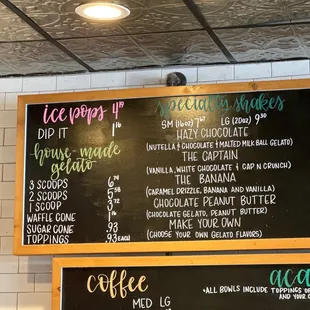 ice pops 4.19
DIP IT 1.16
house-made
gelato
3 SCOOPS 6.74
2 SCOOPS 5.58
1 SCOOP 3.72
WAFFLE CONE 1.16
SUGAR CONE .93
TOPPINGS .93 EACH
specialty shakes
SM (16oz) 7.67 LG (20oz) 9.30
HAZY CHOCOLATE
(NUTELLA & CHOCOLATE & MALTED MILK BALL GELATO)
THE CAPTAIN
(VANILLA, WHITE CHOCOLATE & CAP N CRUNCH)
THE BANANA
(CARAMEL DRIZZLE, BANANA AND VANILLA)
CHOCOLATE PEANUT BUTTER
(CHOCOLATE GELATO, PEANUT BUTTER)
MAKE YOUR OWN
(CHOOSE YOUR OWN GELATO FLAVORS)
coffee
MED LG
*ALL BOWLS INCLUDE TOPPINGS
AND YOUR